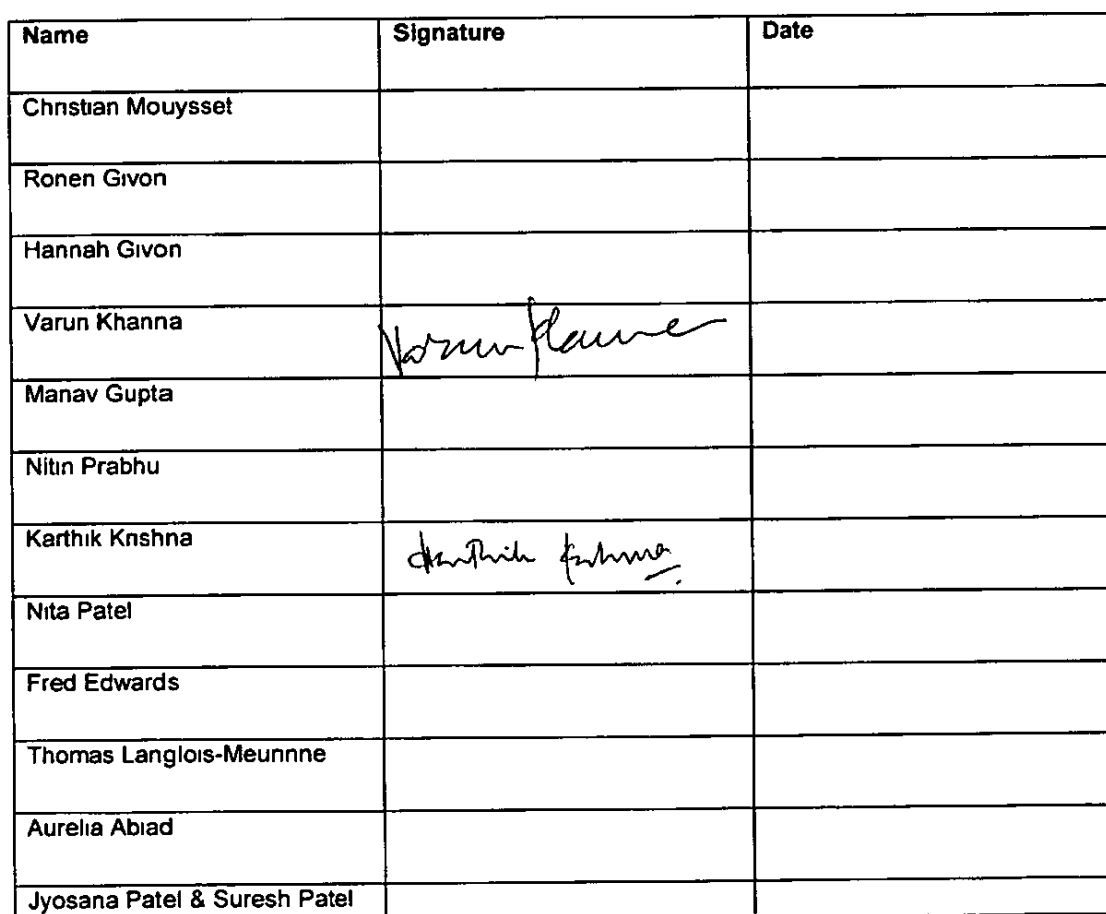 Name Signature Date
Christian Mouysset
Ronen Givon
Hannah Givon
Varun Khanna Varun Khanna
Manav Gupta
Nitin Prabhu
Karthik Krishna Karthik Krishna
Nita Patel
Fred Edwards
Thomas Langlois-Meurinne
Aurelia Abiad
Jyosana Patel & Suresh Patel